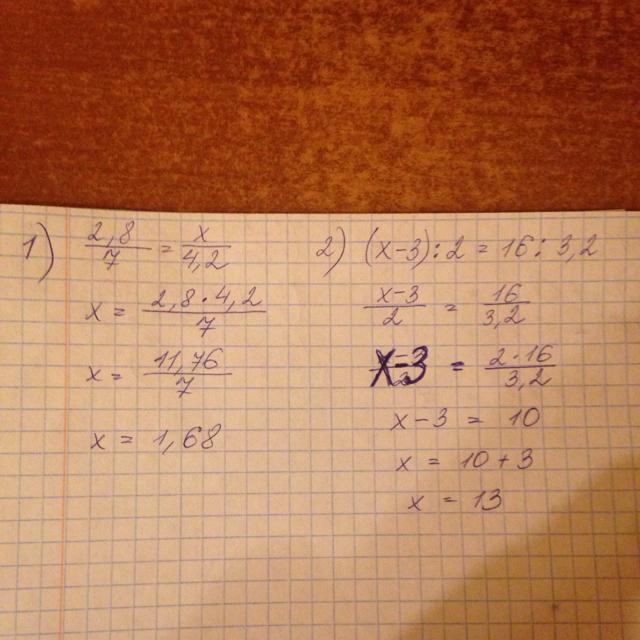 1) 2,8/7 = x/4,2
x = 2,8·4,2/7
x = 11,76/7
x = 1,68
2) (x-3):2 = 16:3,2
x-3/2 = 16/3,2
x-3 = 2·16/3,2
x-3 = 10
x = 10+3
x = 13